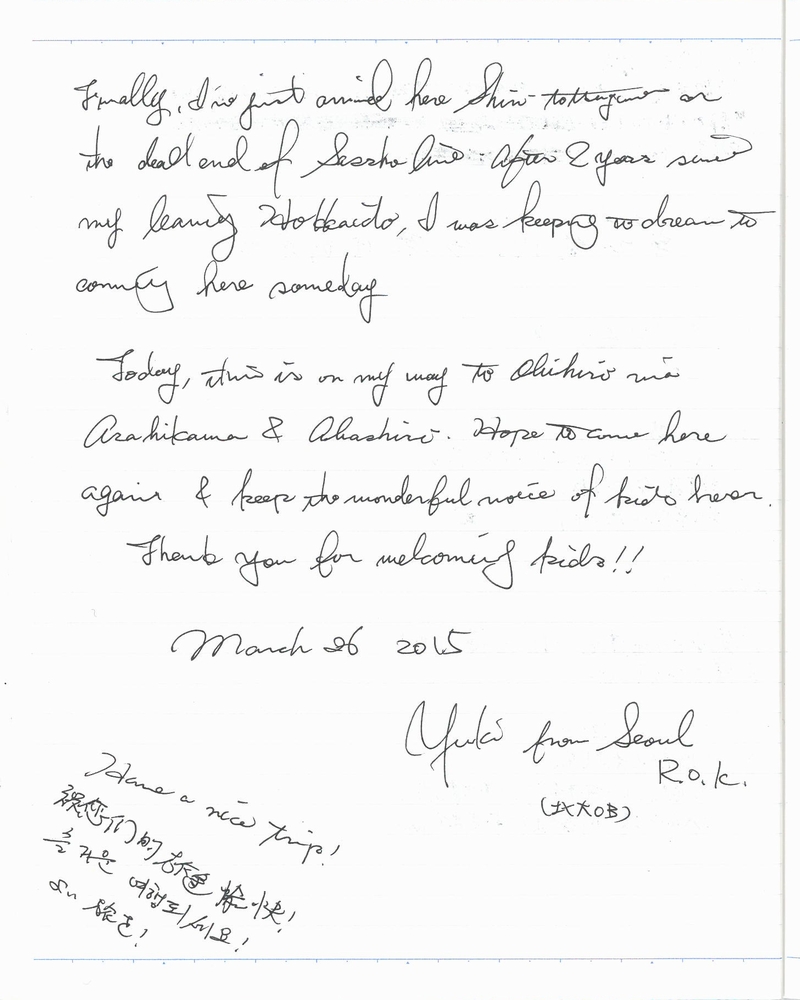 Finally, I've just arrived here Shin-totsugawa on
the dead end of Sassho line. After 2 years since
my leaving Hokkaido, I was keeping to dream to
coming here someday
Today, this is on my way to Obihiro via
Asahikawa & Abashiri. Hope to come here
again & keep the wonderful voice of kids hear.
Thank you for welcoming kids!!
March 26 2015
Yuki from Seoul
R.O.K.
(北大OB)
Have a nice trip!
祝您们的旅途愉快!
즐거운 여행되세요!
よい旅を!